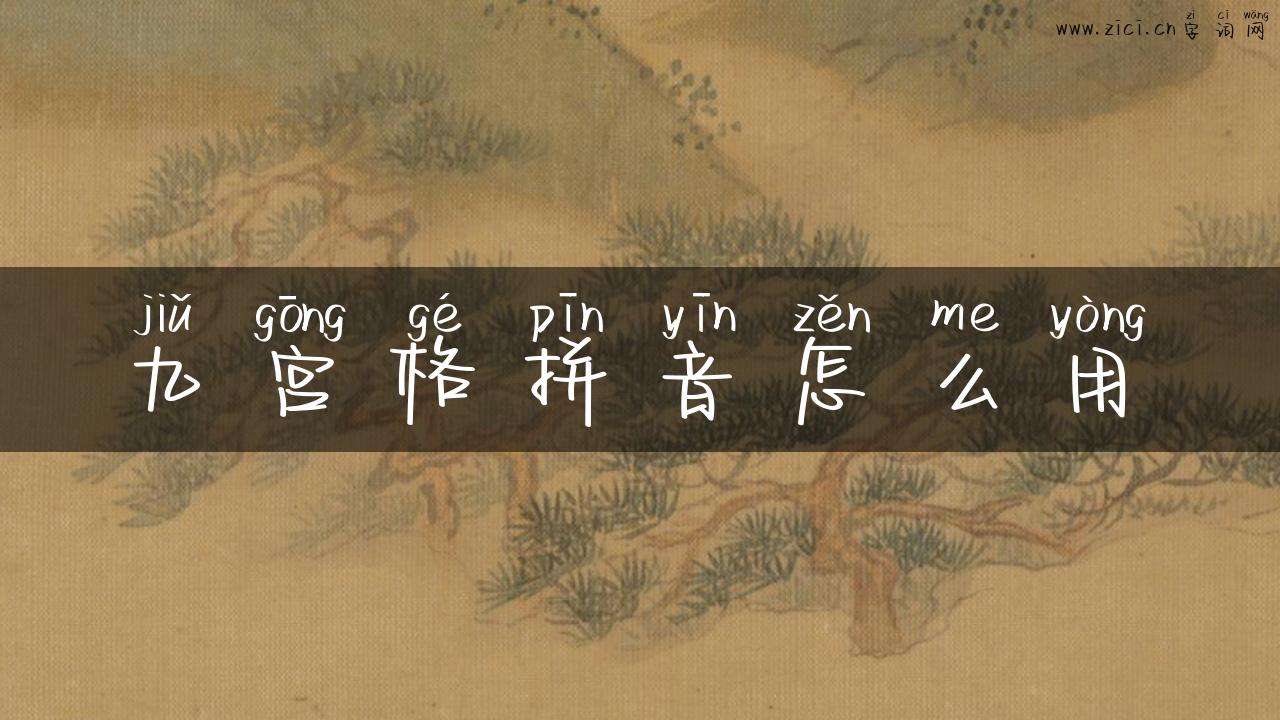 zì cí wǎng
www.zici.cn 字词网
jiǔ gōng gé pīn yīn zěn me yòng
九宫格拼音怎么用